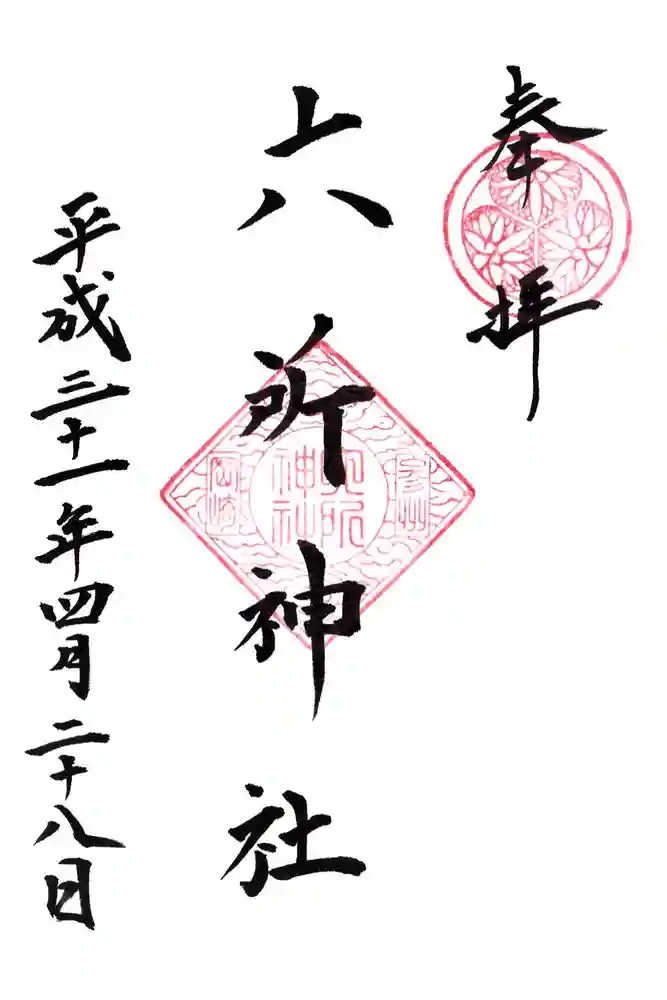 奉拝
六所神社
六所神社
岡崎
平成三十一年四月二十八日